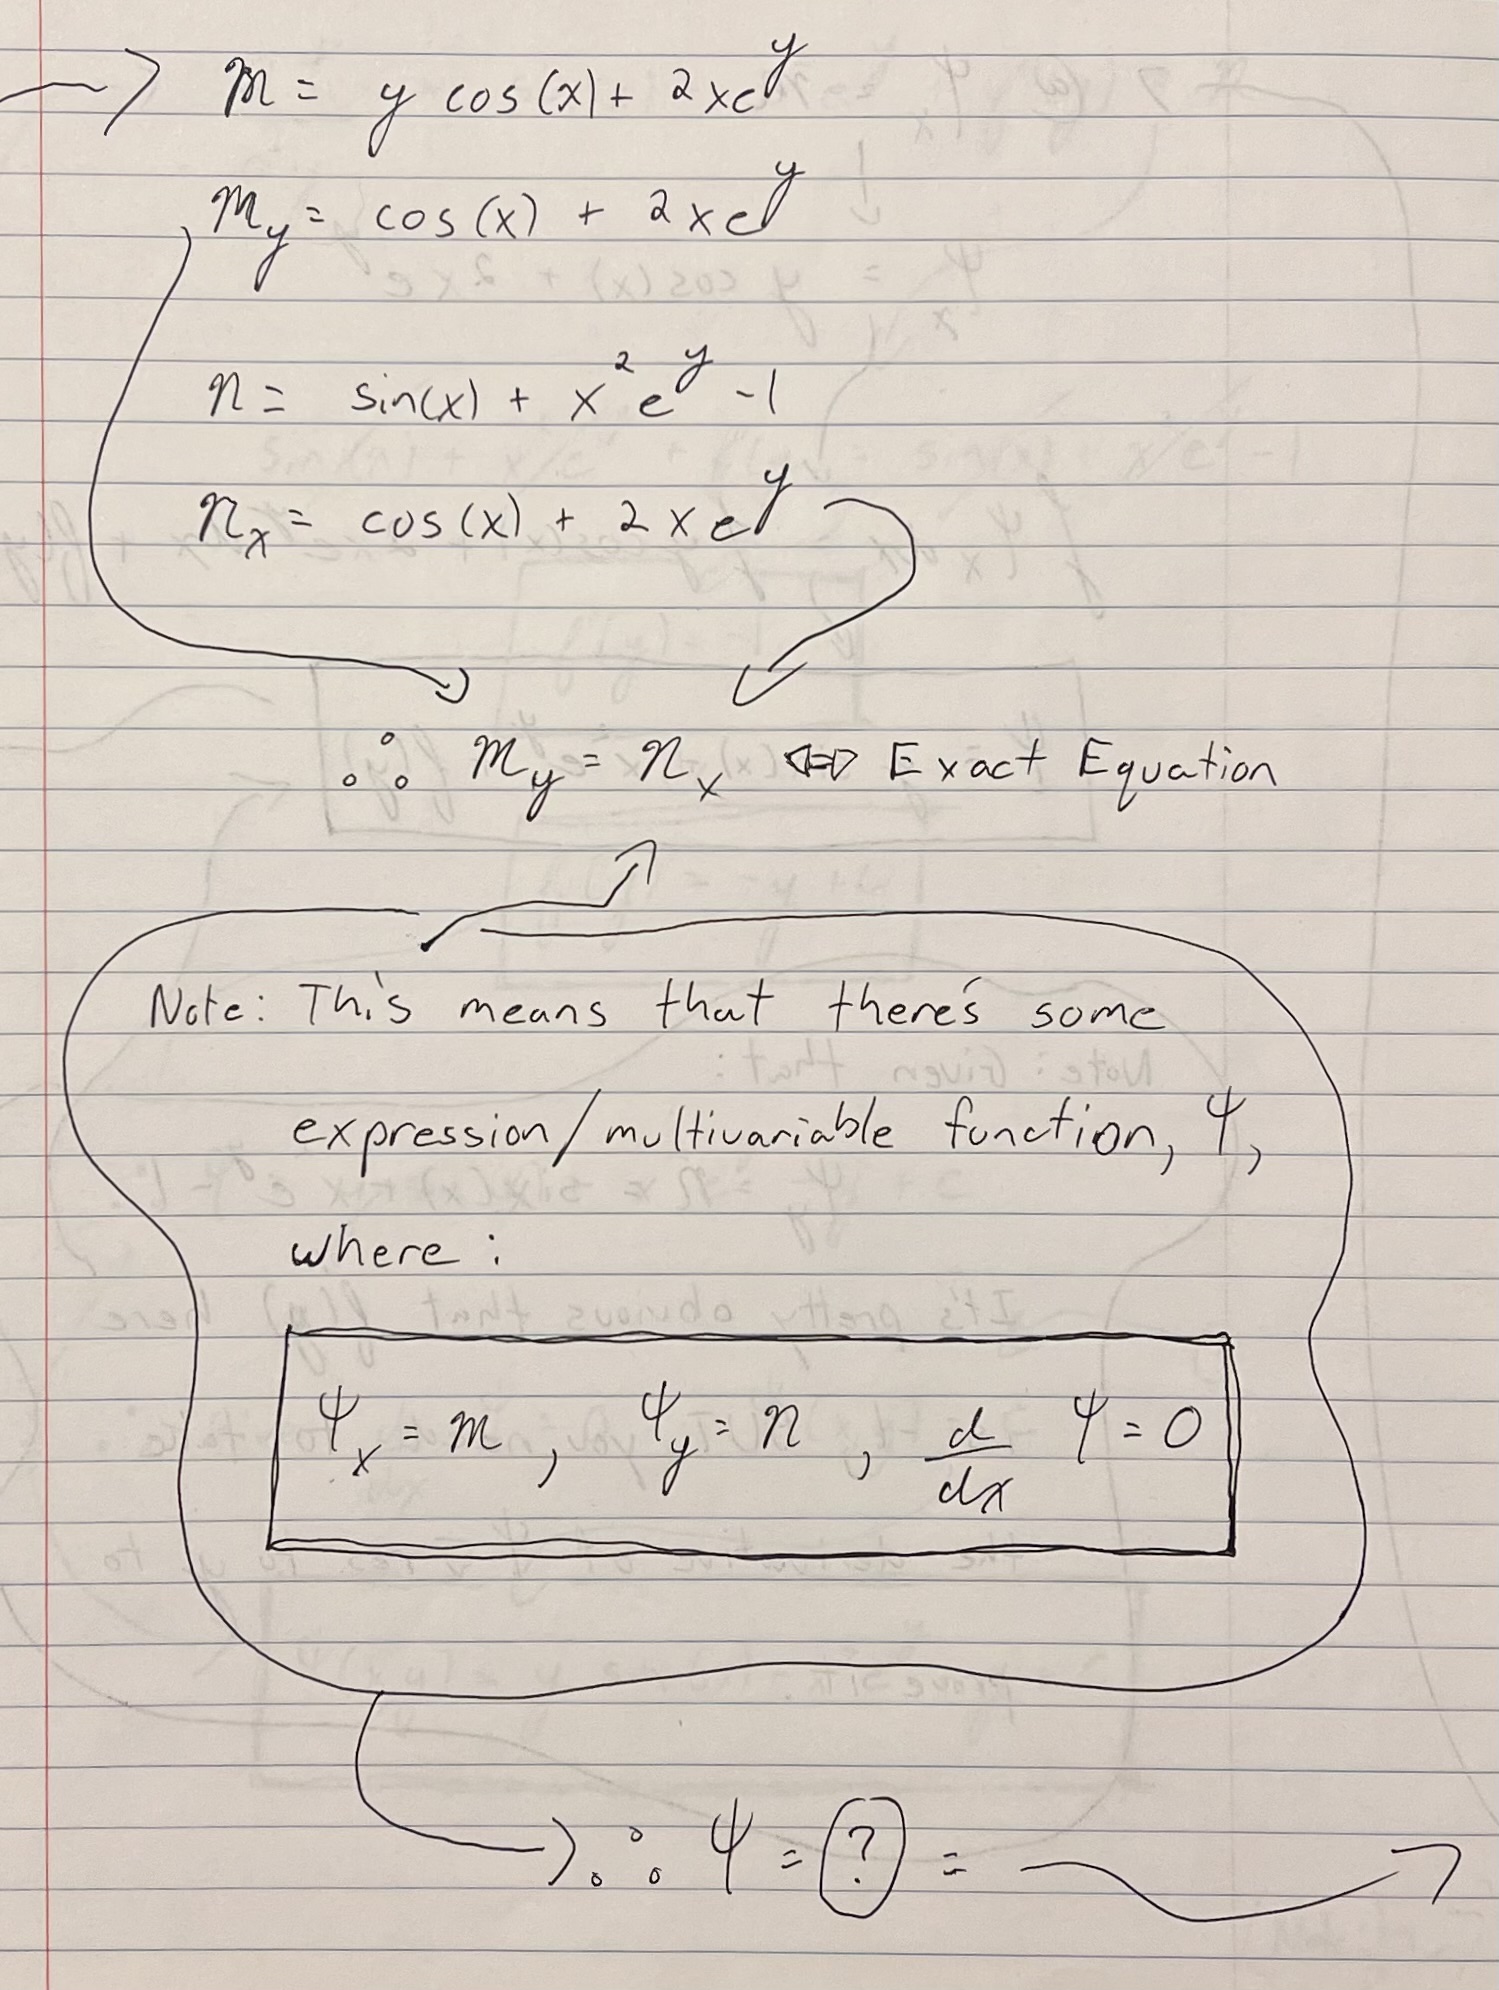 m = y cos(x) + 2xe^y
m_y = cos(x) + 2xe^y
n = sin(x) + x^2 e^y - 1
n_x = cos(x) + 2xe^y
∴ m_y = n_x ⇔ Exact Equation
Note: This means that there's some
expression/multivariable function, Ψ,
where:
Ψ_x = m, Ψ_y = n, d/dx Ψ = 0
∴ Ψ = ? =